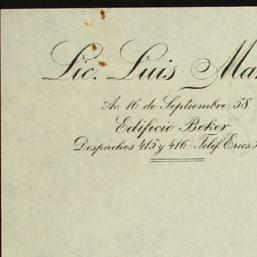 Lic. Luis Ma
Av. 16 de Septiembre, 58
Edificio Boker
Despachos 415 y 416 - Telef. Erics